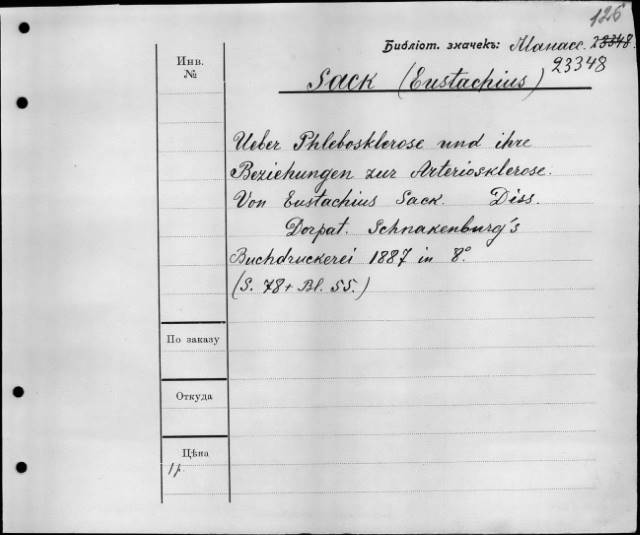 126
Библіот. значекъ: Манасс. 23348.
23348
Инв.
№
Sack (Eustachius)
Ueber Phlebosklerose und ihre
Beziehungen zur Arteriosklerose.
Von Eustachius Sack. Diss.
Dorpat. Schnakenburg's
Buchdruckerei 1887 in 8°.
(S. 78 + Bl. 55.)
По заказу
Откуда
Цѣна
1 р.